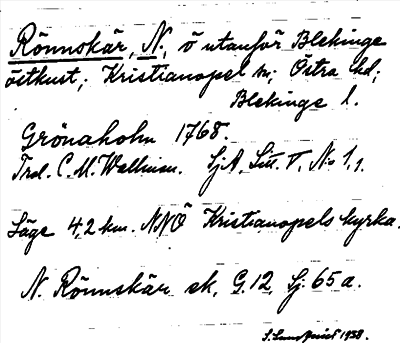 Rönnskär, N., ö utanför Blekinge
östkust; Kristianopel sn; Östra hd;
Blekinge l.
Grönaholm 1768.
Trol. C. M. Wallman. SjA, Litt. V, No 1,1.
Läge 4,2 km. NNÖ Kristianopels kyrka.
N. Rönnskär ek, G. 12, Sj. 65 a.
1938.